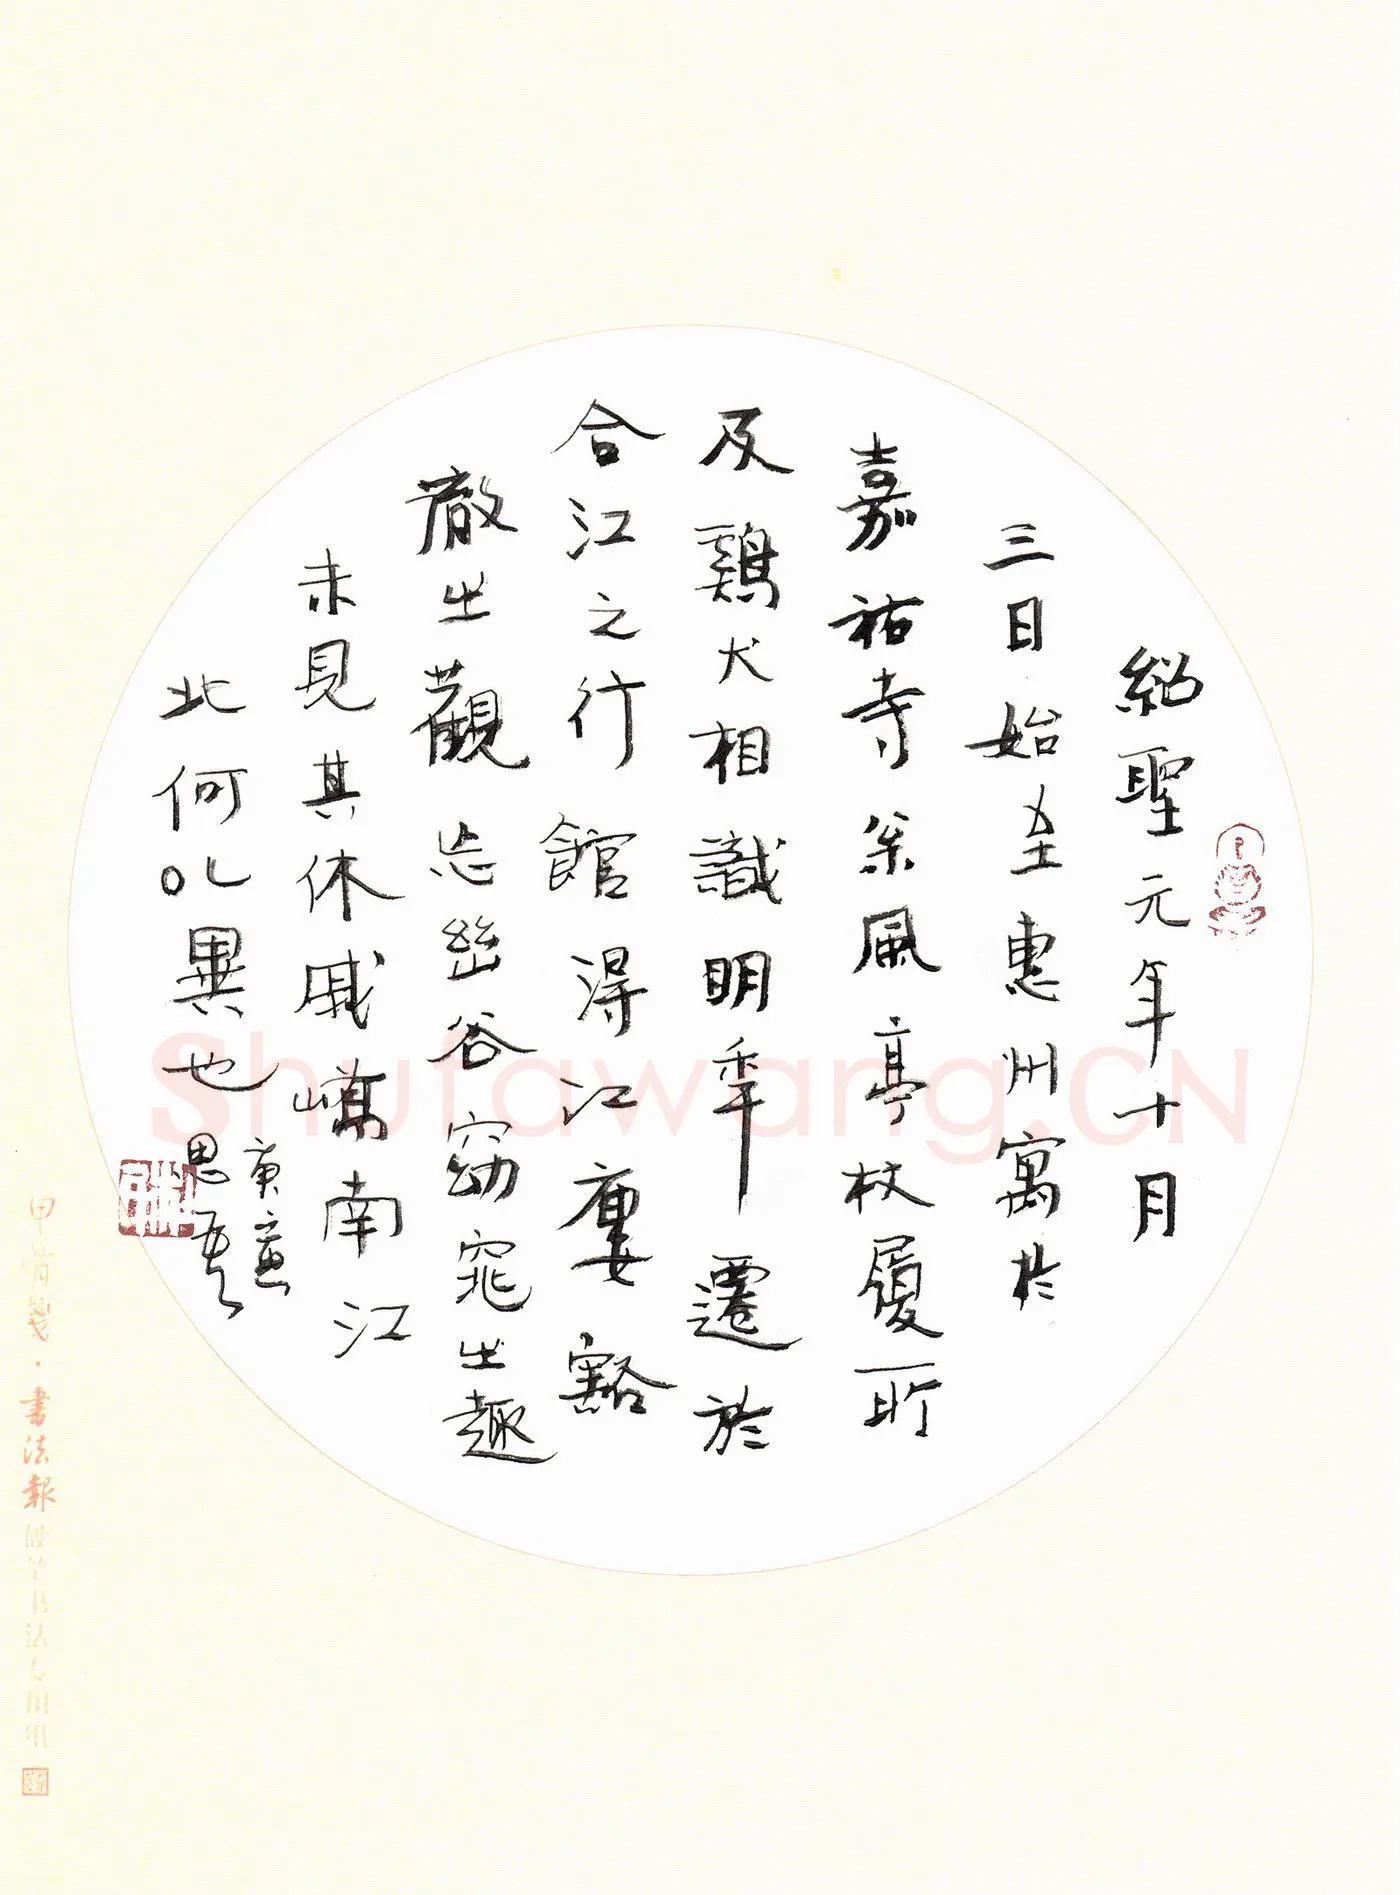 紹聖元年十月
三日始至惠州寓於
嘉祐寺松風亭杖履所
及鷄犬相識明年遷於
合江之行館得江廔豁
徹之觀忘幽谷窈窕之趣
未見其休戚嶠南江
北何以異也
庚
思吾
Shufawang.CN
甲骨箋·書法報硬笔书法专用纸